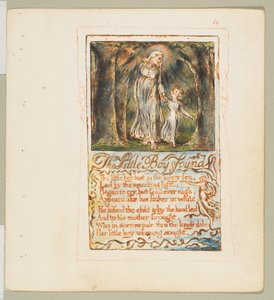 The Little Boy found
The little boy lost in the lonely fen,
Led by the wand'ring light,
Began to cry, but God ever nigh,
Appeard like his father in white.
He kissed the child & by the hand led
And to his mother brought,
Who in sorrow pale, thro' the lonely dale
Her little boy weeping sought.